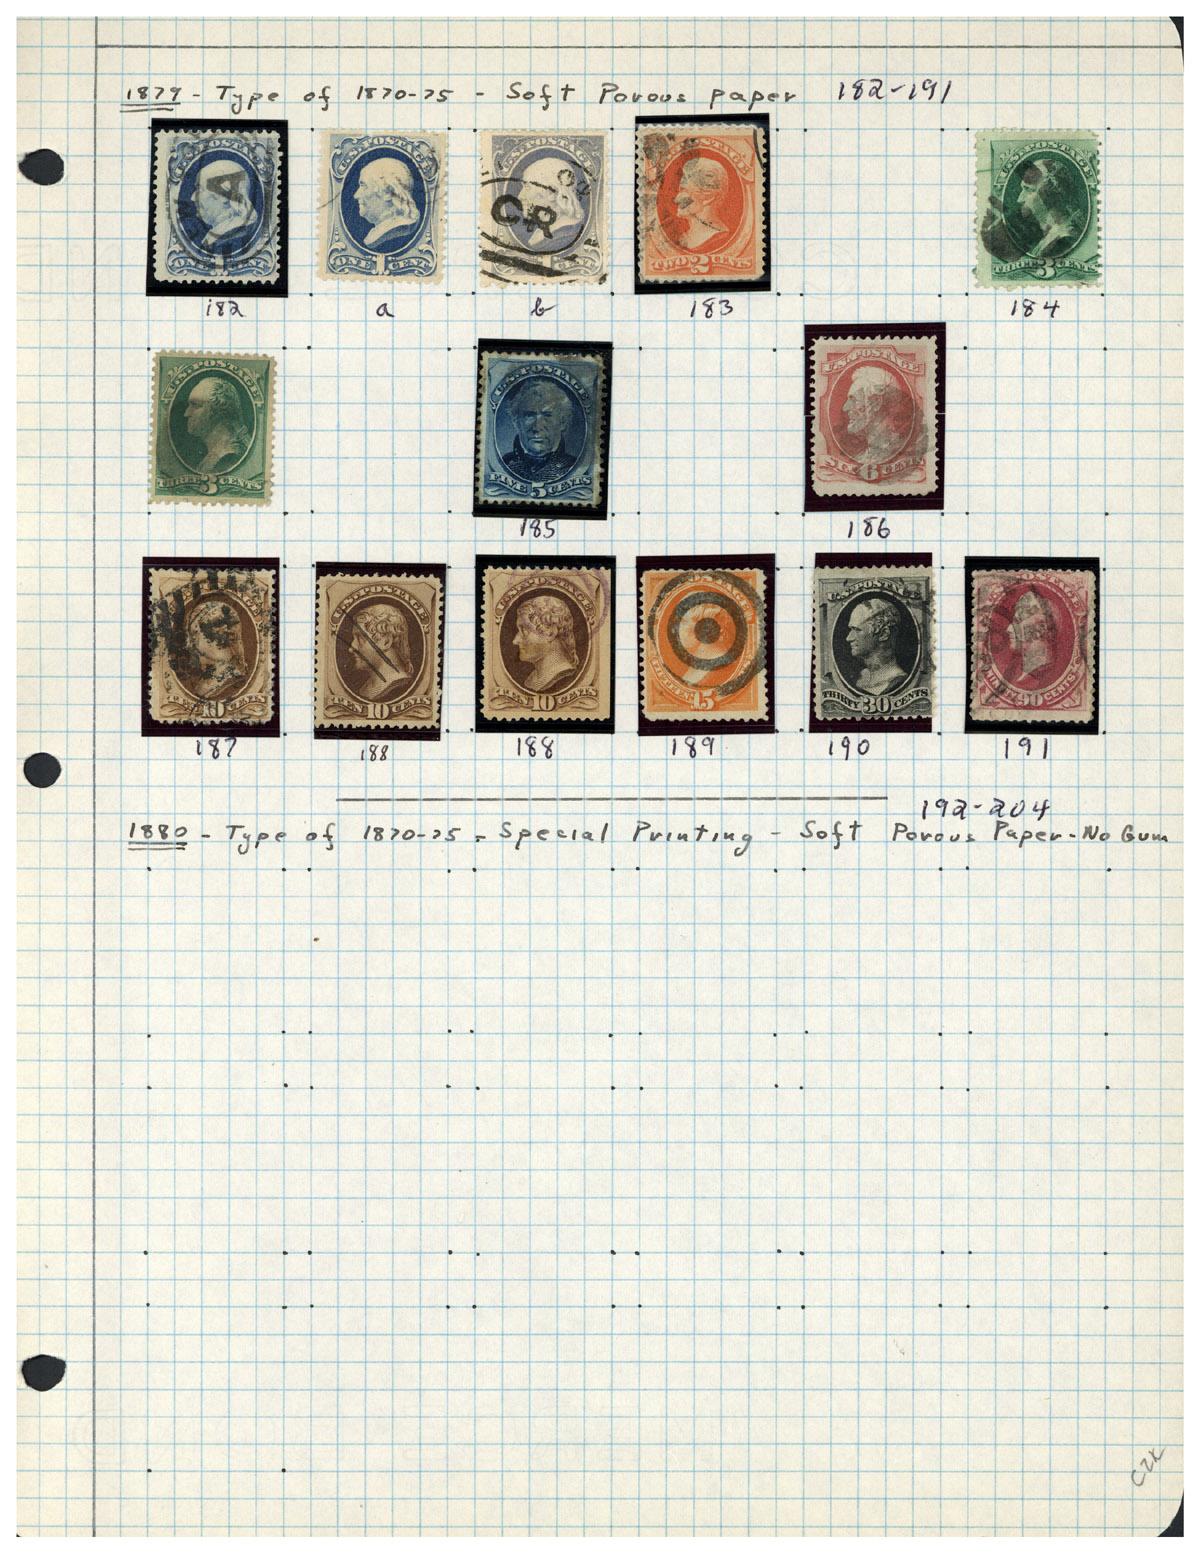 1879 - Type of 1870-75 - Soft Porous paper 182-191
U.S. POSTAGE U.S. POSTAGE U.S. POSTAGE
A CR
ONE 1 CENT ONE 1 CENT TWO 2 CENTS THREE 3 CENTS
182 a b 183 184
U.S. POSTAGE U.S. POSTAGE U.S. POSTAGE
THREE 3 CENTS FIVE 5 CENTS SIX 6 CENTS
185 186
U.S. POSTAGE U.S. POSTAGE POSTAGE U.S. POSTAGE
TEN 10 CENTS TEN 10 CENTS TEN 10 CENTS FIFTEEN 15 THIRTY 30 CENTS 90 CENTS
187 188 188 189 190 191
192-204
1880 - Type of 1870-75 - Special Printing - Soft Porous Paper - No Gum